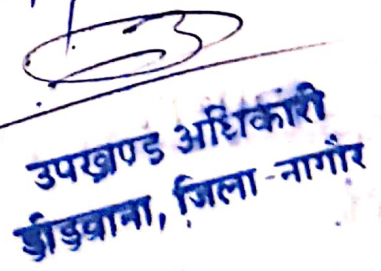 उपखण्ड अधिकारी
डीडवाना, जिला-नागौर